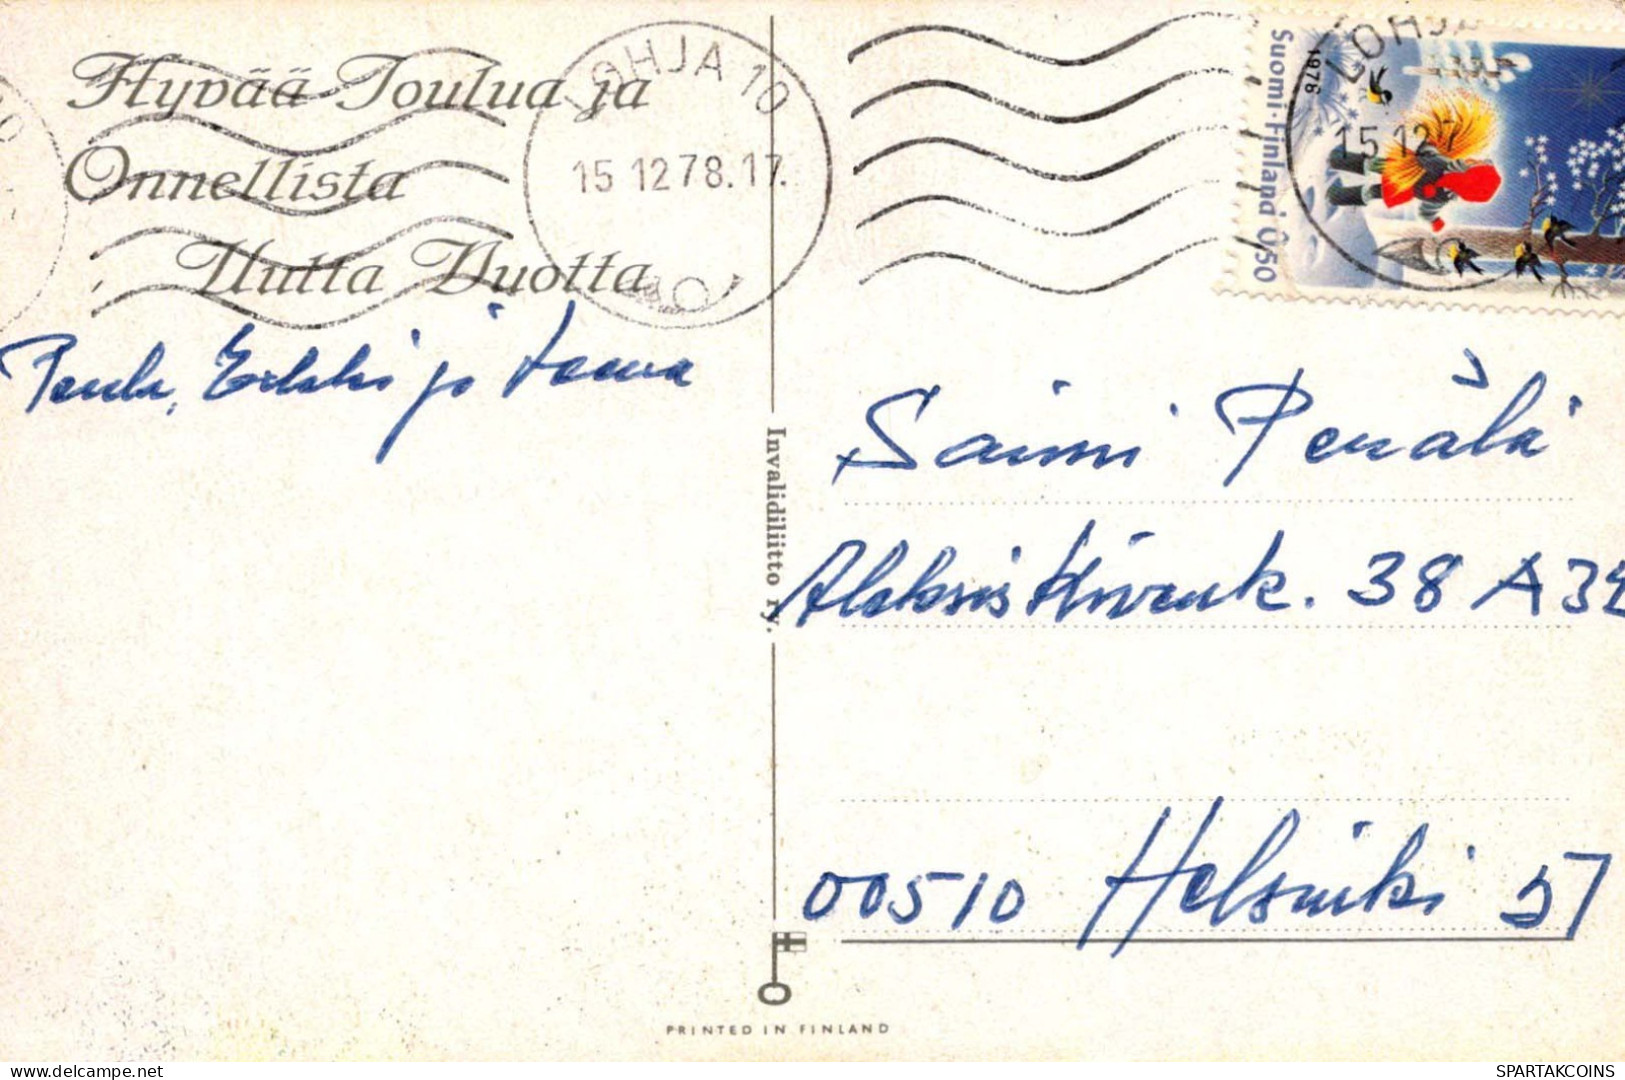 Hyvää Joulua ja
Onnellista
Uutta Vuotta
LOHJA 10
15.12.78.17.
Suomi-Finland 0,50
1976
LOHJA
15.12.7
Erkki ja
Invalidiliitto ry.
Saimi Perälä
Aleksis Kivenk. 38 A 32
00510 Helsinki 51
PRINTED IN FINLAND
delcampe.net
SPARTAKCOINS